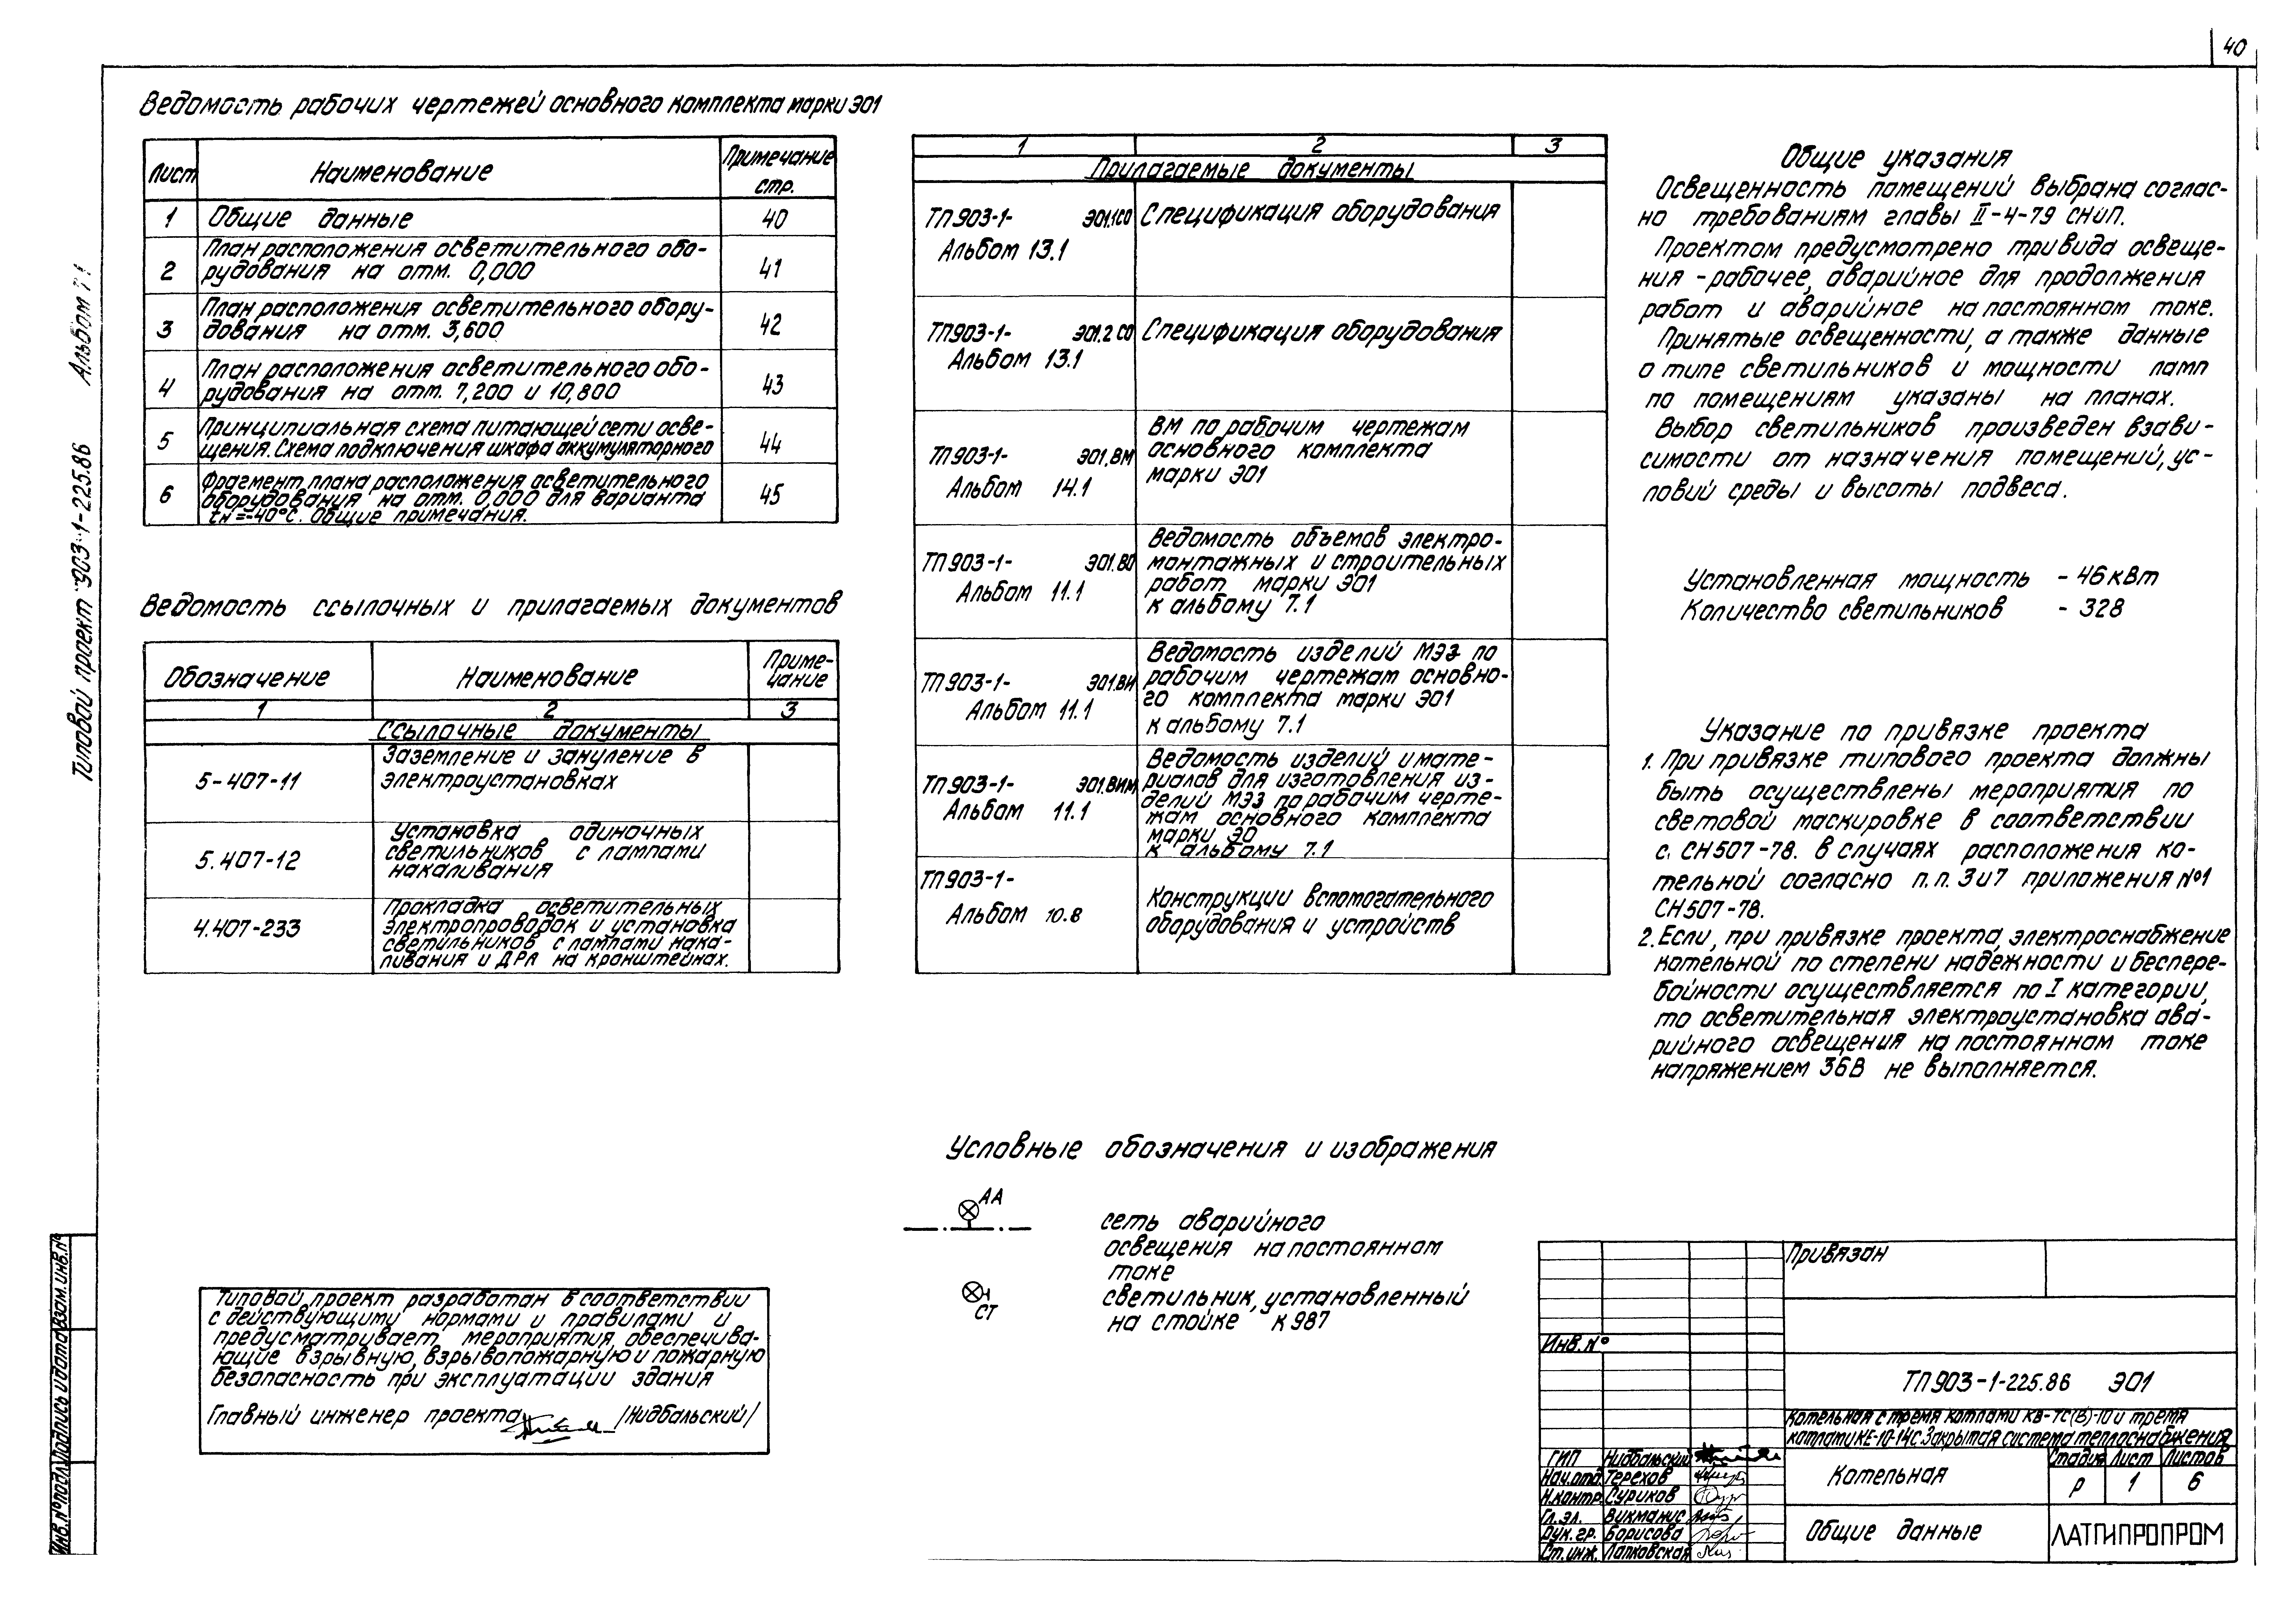 40
Типовой проект 903-1-225.86 Альбом
Ведомость рабочих чертежей основного комплекта марки ЭО1
Лист Наименование Примечание стр.
1 Общие данные 40
2 План расположения осветительного обо-
рудования на отм. 0,000 41
3 План расположения осветительного обору-
дования на отм. 3,600 42
4 План расположения осветительного обо-
рудования на отм. 7,200 и 10,800 43
5 Принципиальная схема питающей сети осве-
щения. Схема подключения шкафа аккумуляторного 44
6 Фрагмент плана расположения осветительного
оборудования на отм. 0,000 для варианта
tн=-40°С. Общие примечания. 45
Ведомость ссылочных и прилагаемых документов
Обозначение Наименование Приме-
чание
1 2 3
Ссылочные документы
5-407-11 Заземление и зануление в
электроустановках
5.407-12 Установка одиночных
светильников с лампами
накаливания
4.407-233 Прокладка осветительных
электропроводок и установка
светильников с лампами нака-
ливания и ДРЛ на кронштейнах.
1 2 3
Прилагаемые документы
ТП 903-1- ЭО1.1СО Спецификация оборудования
Альбом 13.1
ТП903-1- ЭО1.2 СО Спецификация оборудования
Альбом 13.1
ТП903-1- ЭО1.ВМ ВМ по рабочим чертежам
Альбом 14.1 основного комплекта
марки ЭО1
ТП903-1- ЭО1.ВО Ведомость объемов электро-
Альбом 11.1 монтажных и строительных
работ марки ЭО1
к альбому 7.1
ТП903-1- ЭО1.ВИ Ведомость изделий МЭЗ по
Альбом 11.1 рабочим чертежам основно-
го комплекта марки ЭО1
к альбому 7.1
ТП903-1- ЭО1.ВИМ Ведомость изделий и мате-
Альбом 11.1 риалов для изготовления из-
делий МЭЗ по рабочим черте-
жам основного комплекта
марки ЭО
к альбому 7.1
ТП903-1-
Альбом 10.8 Конструкции вспомогательного
оборудования и устройств
Общие указания
Освещенность помещений выбрана соглас-
но требованиям главы II-4-79 СНиП.
Проектом предусмотрено три вида освеще-
ния - рабочее, аварийное для продолжения
работ и аварийное на постоянном токе.
Принятые освещенности, а также данные
о типе светильников и мощности ламп
по помещениям указаны на планах.
Выбор светильников произведен в зави-
симости от назначения помещений, ус-
ловий среды и высоты подвеса.
Установленная мощность - 46 кВт
Количество светильников - 328
Указание по привязке проекта
1. При привязке типового проекта должны
быть осуществлены мероприятия по
световой маскировке в соответствии
с. СН507-78. в случаях расположения ко-
тельной согласно п.п. 3 и 7 приложения №1
СН507-78.
2. Если, при привязке проекта, электроснабжение
котельной по степени надежности и беспере-
бойности осуществляется по I категории,
то осветительная электроустановка ава-
рийного освещения на постоянном токе
напряжением 36В не выполняется.
Условные обозначения и изображения
АА
сеть аварийного
освещения на постоянном
токе
СТ
светильник, установленный
на стойке К987
Типовой проект разработан в соответствии
с действующими нормами и правилами и
предусматривает мероприятия, обеспечива-
ющие взрывную, взрывопожарную и пожарную
безопасность при эксплуатации здания
Главный инженер проекта /Нидбальский/
Инв.№ подл. Подпись и дата Взам.инв.№
Привязан
Инв.№
ТП903-1-225.86 ЭО1
Котельная с тремя котлами КВ-ТС(В)-10 и тремя
котлами КЕ-10-14С. Закрытая система теплоснабжения
ГИП Нидбальский
Нач.отд. Терехов
Н.контр. Суриков
Гл.эл. Викманис
Рук.гр. Борисова
Ст.инж. Лапковская
Котельная
Стадия Лист Листов
Р 1 6
Общие данные
ЛАТГИПРОПРОМ